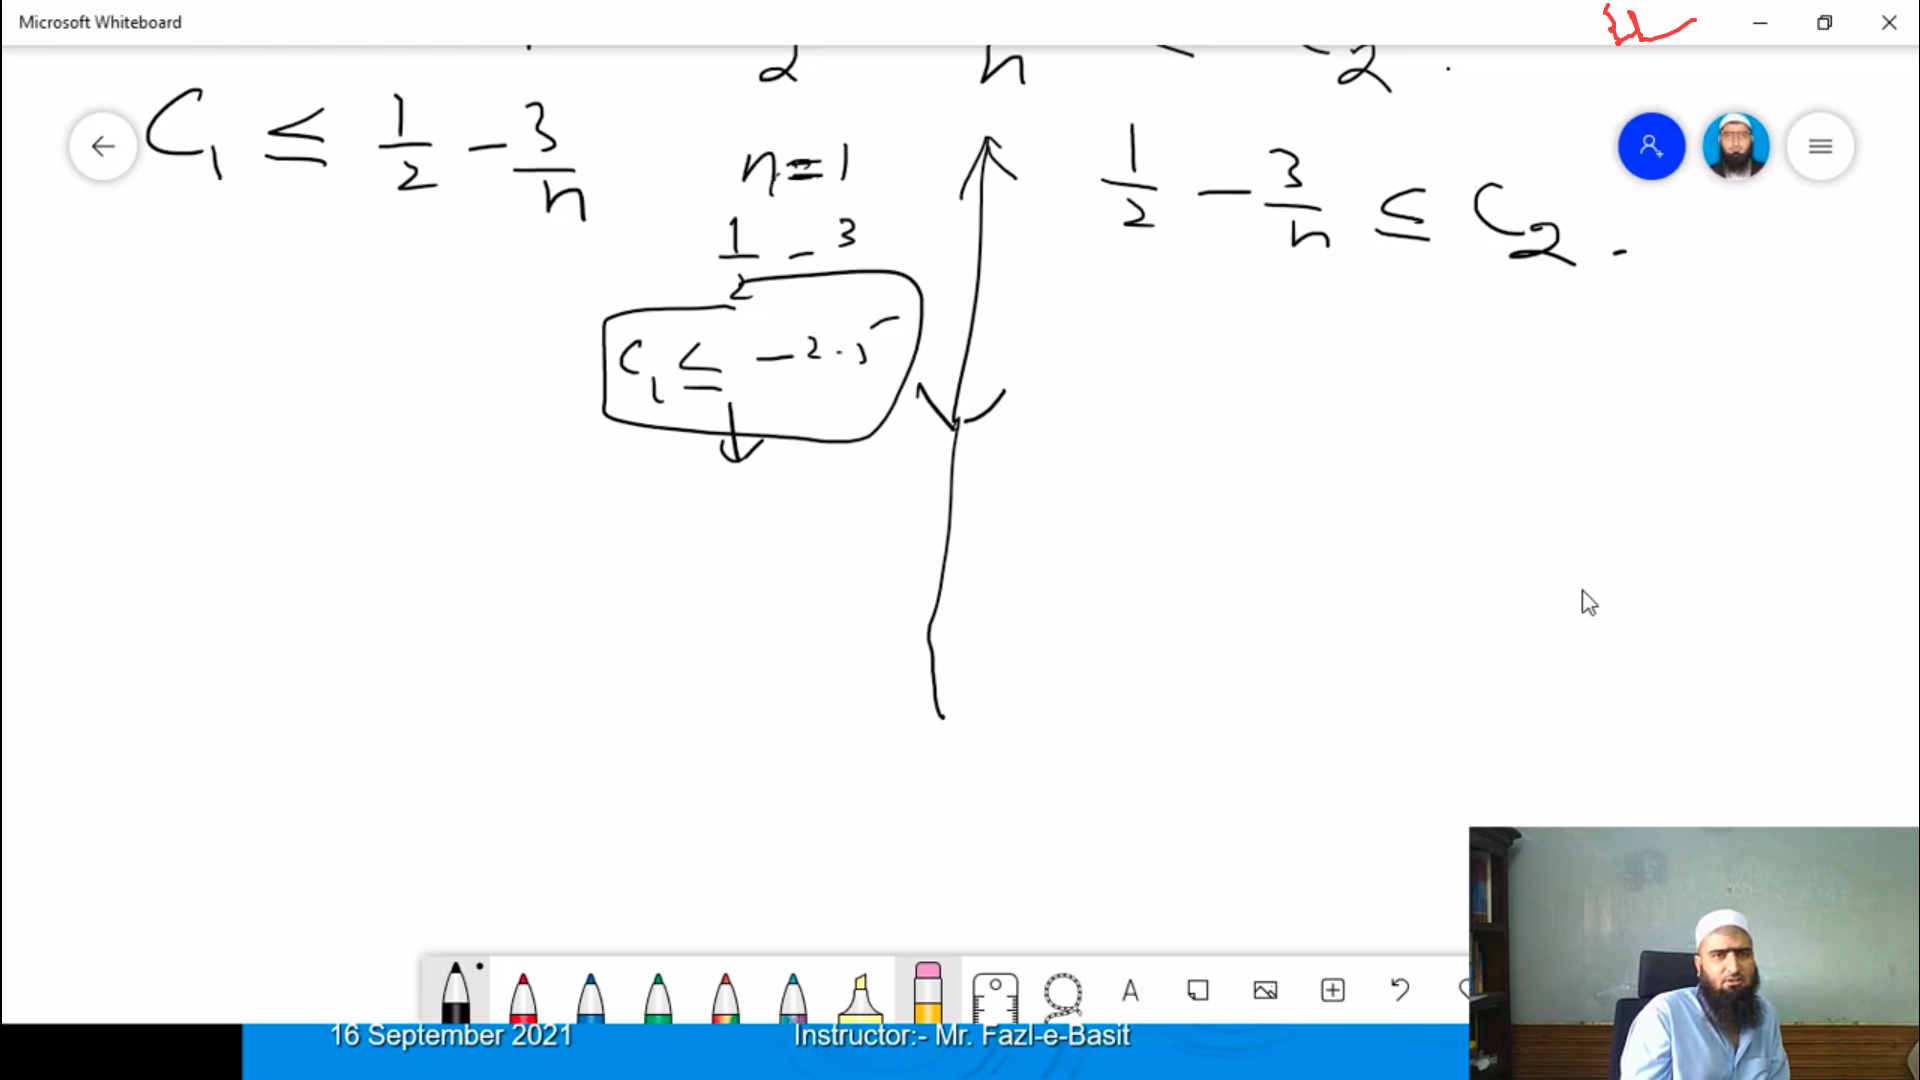 Microsoft Whiteboard
C₁ ≤ 1/2 - 3/n
n = 1
1/2 - 3
C₁ ≤ -2.5
1/2 - 3/n ≤ C₂.
16 September 2021
Instructor:- Mr. Fazl-e-Basit